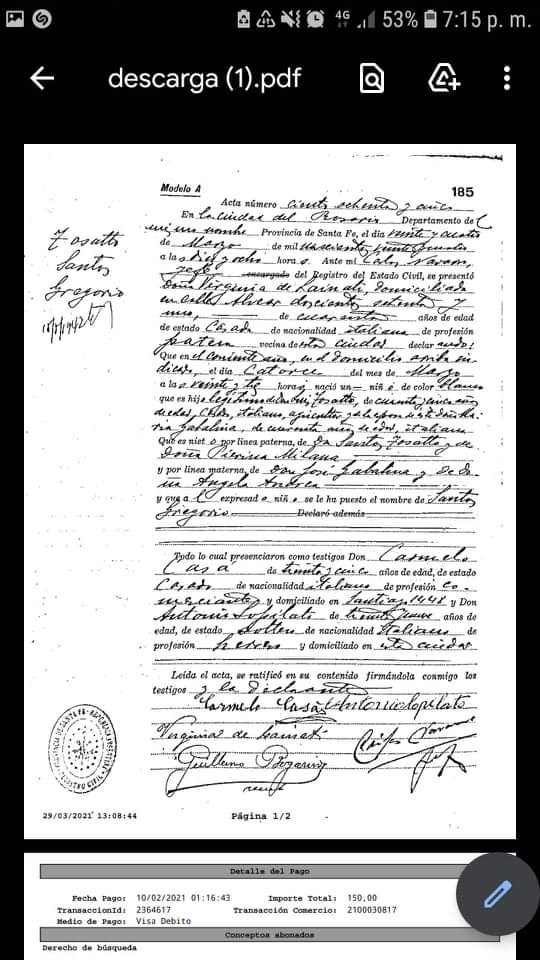 4G 53% 7:15 p. m.
descarga (1).pdf
Modelo A
185
Acta número ciento ochenta y cinco
En la ciudad del Rosario Departamento del
mismo nombre Provincia de Santa Fe, el día veinte y cuatro
de Marzo de mil novecientos veinte y cuatro
a las diez y ocho horas Ante mí Carlos Navarro,
Jefe encargado del Registro del Estado Civil, se presentó
Doña Virginia de Lainati, domiciliada
en calle Alvear doscientos setenta y
uno, de cuarenta años de edad
de estado Casada de nacionalidad italiana de profesión
partera vecina de esta ciudad declarando:
Que en el corriente año, en el domicilio arriba in-
dicado, el día Catorce del mes de Marzo
a las veinte y tres horas nació un niño de color blanco
que es hijo legítimo de Tosatto, de cuarenta y cinco años
de edad, casado, italiano, agricultor y de la esposa de éste doña Ma-
ría Gabalina, de cuarenta años de edad, italiana
Que es nieto por línea paterna, de Don Santos Tosatto y de
Doña Pierina Milana
y por línea materna, de Don José Gabalina y de Do-
ña Angela Andrea
y que a el expresado niño se le ha puesto el nombre de Santos
Gregorio Declaró además
Todo lo cual presenciaron como testigos Don Carmelo
Casá de treinta y cinco años de edad, de estado
Casado de nacionalidad italiano de profesión co-
merciante y domiciliado en Santiago 1448 y Don
Antonio Lopilato de treinta y nueve años de
edad, de estado soltero de nacionalidad Italiano de
profesión y domiciliado en esta ciudad
Leída el acta, se ratificó en su contenido firmándola conmigo los
testigos y la declarante
Carmelo Casá Antonio Lopilato
Virginia de Lainati
Guillermo
Tosatto
Santos
Gregorio
PROVINCIA DE SANTA FE - REPUBLICA ARGENTINA
29/03/2021 13:08:44
Página 1/2
Detalle del Pago
Fecha Pago: 10/02/2021 01:16:43 Importe Total: 150,00
TransaccionId: 2364617 Transacción Comercio: 2100030817
Medio de Pago: Visa Debito
Conceptos abonados
Derecho de búsqueda